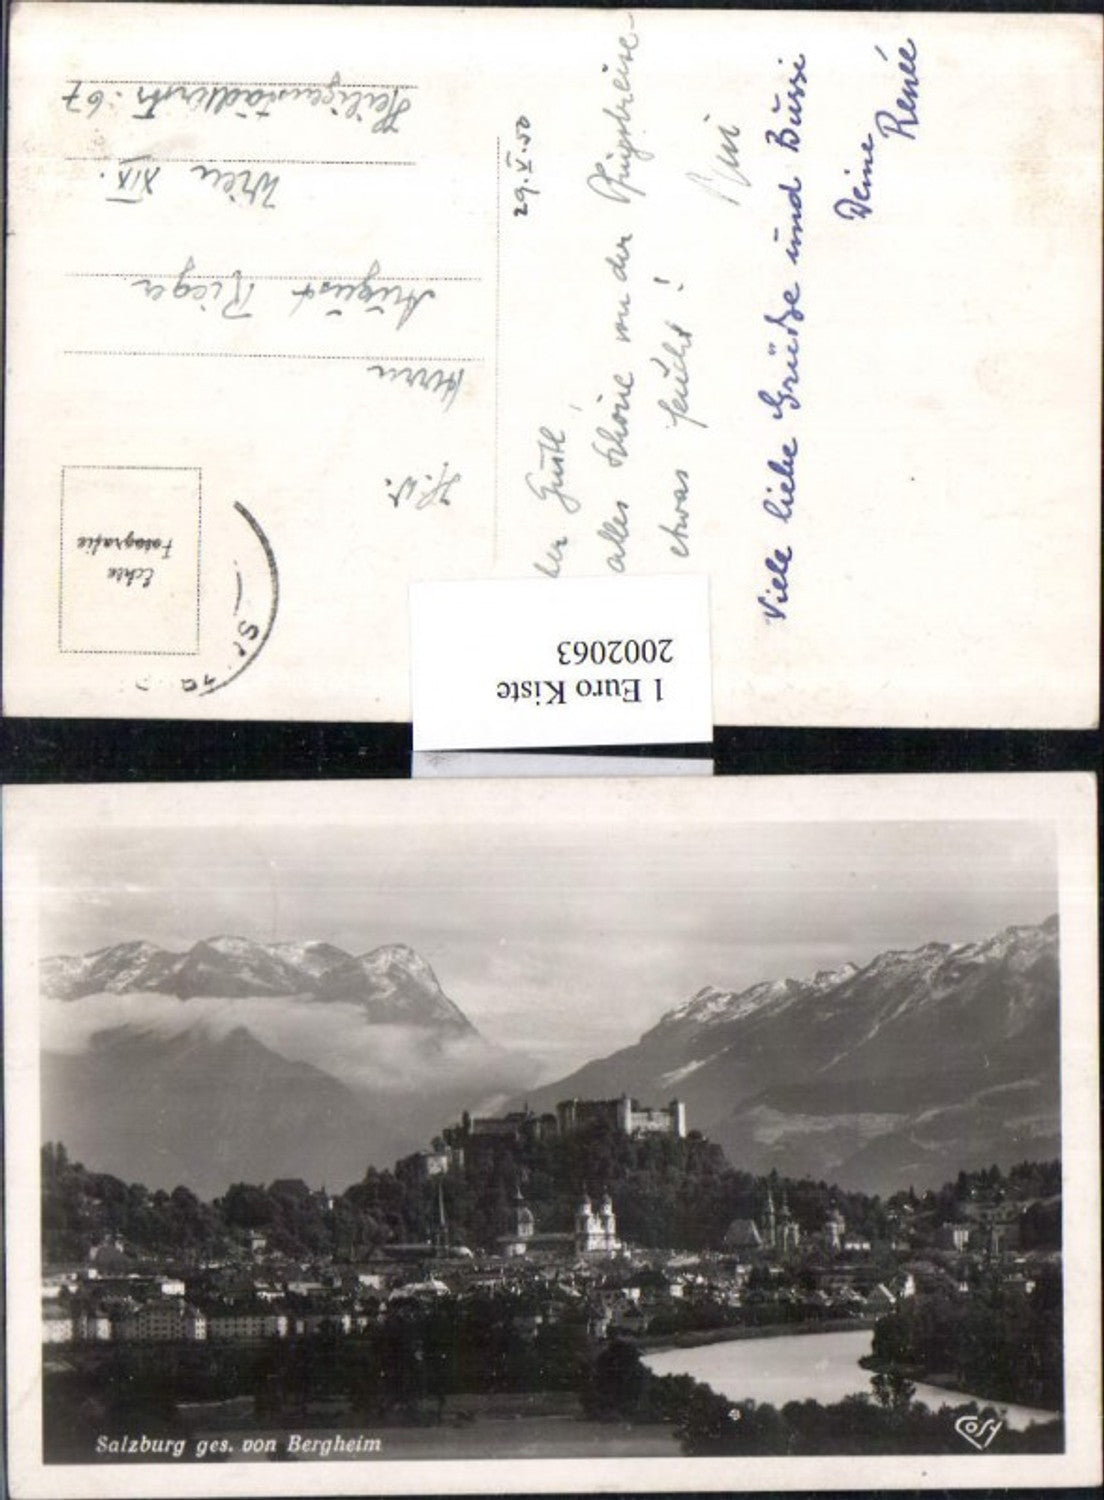 29.V.50
Gustl!
alles Schöne von der Pfingstreise-
etwas feucht!
Viele liebe Grüsse und Bussi
Deine
Renée
H.W.
Herrn
August Rieger
Wien XIX.
Heiligenstädterstr. 67
Echte
Fotografie
1 Euro Kiste
2002063
Salzburg ges. von Bergheim
Cosy